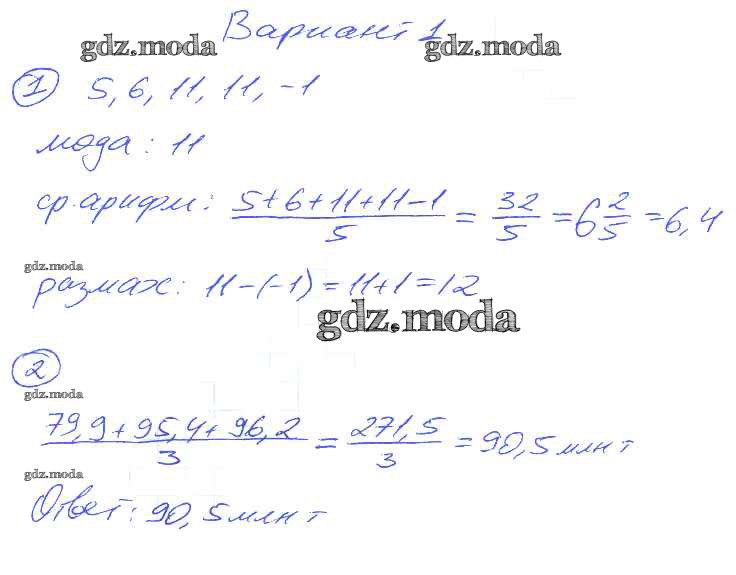 Вариант 1
gdz.moda gdz.moda
① 5, 6, 11, 11, -1
мода: 11
ср. арифм: (5+6+11+11-1)/5 = 32/5 = 6 2/5 = 6,4
gdz.moda
размах: 11-(-1) = 11+1 = 12
gdz.moda
②
gdz.moda
(79,9+95,4+96,2)/3 = 271,5/3 = 90,5 млн т
gdz.moda
Ответ: 90,5 млн т